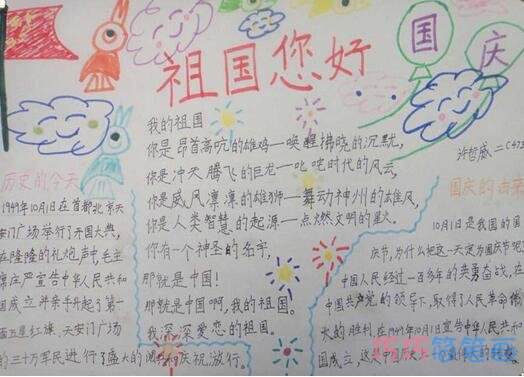 祖国您好
国庆
我的祖国
你是昂首高吭的雄鸡—唤醒拂晓的沉默,
你是冲天腾飞的巨龙—叱咤时代的风云,
你是威风凛凛的雄狮—舞动神州的雄风,
你是人类智慧的起源—点燃文明的星火。
你有一个神圣的名字,
那就是中国!
那就是中国啊,我的祖国。
我深深爱恋的祖国。
许哲威
历史的今天
1949年10月1日在首都北京天
安门广场举行了开国大典,
在隆隆的礼炮声中,毛主
席庄严宣告中华人民共和
国成立并亲手升起了第一
面五星红旗。天安门广场
的三十万军民进行了盛大的阅兵和庆祝游行。
国庆的由来
10月1日是我国的国
庆节,为什么把这一天定为国庆节呢
中国人民经过一百多年的英勇奋战,在
中国共产党的领导下,取得了人民革命的
大的胜利,在1949年10月1日宣告中华人民共和
国成立,这是中国历史上
笔画